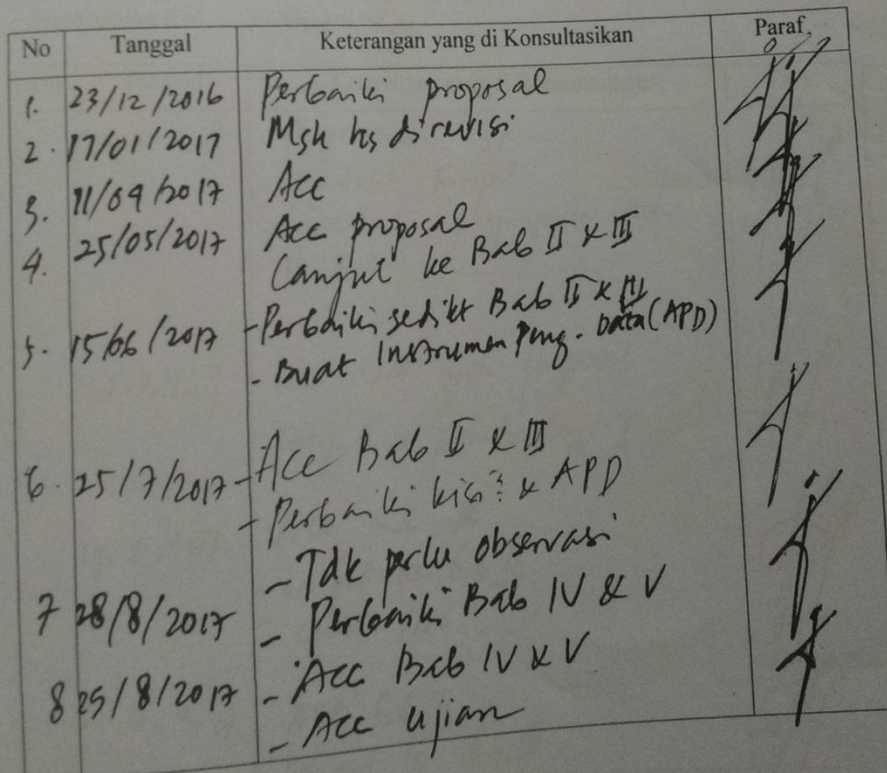 No Tanggal Keterangan yang di Konsultasikan Paraf
1. 23/12/2016 Perbaiki proposal
2. 17/01/2017 Msh hs direvisi
3. 11/04/2017 Acc
4. 25/05/2017 Acc proposal
Lanjut ke Bab II & III
5. 15/06/2017 - Perbaiki sedikt Bab II & III
- Buat Instrumen Peng. Data (APD)
6. 25/7/2017 - Acc Bab II & III
- Perbaiki & APD
- Tdk perlu observasi
7 28/8/2017 - Perbaiki Bab IV & V
8 25/8/2017 - Acc Bab IV & V
- Acc ujian